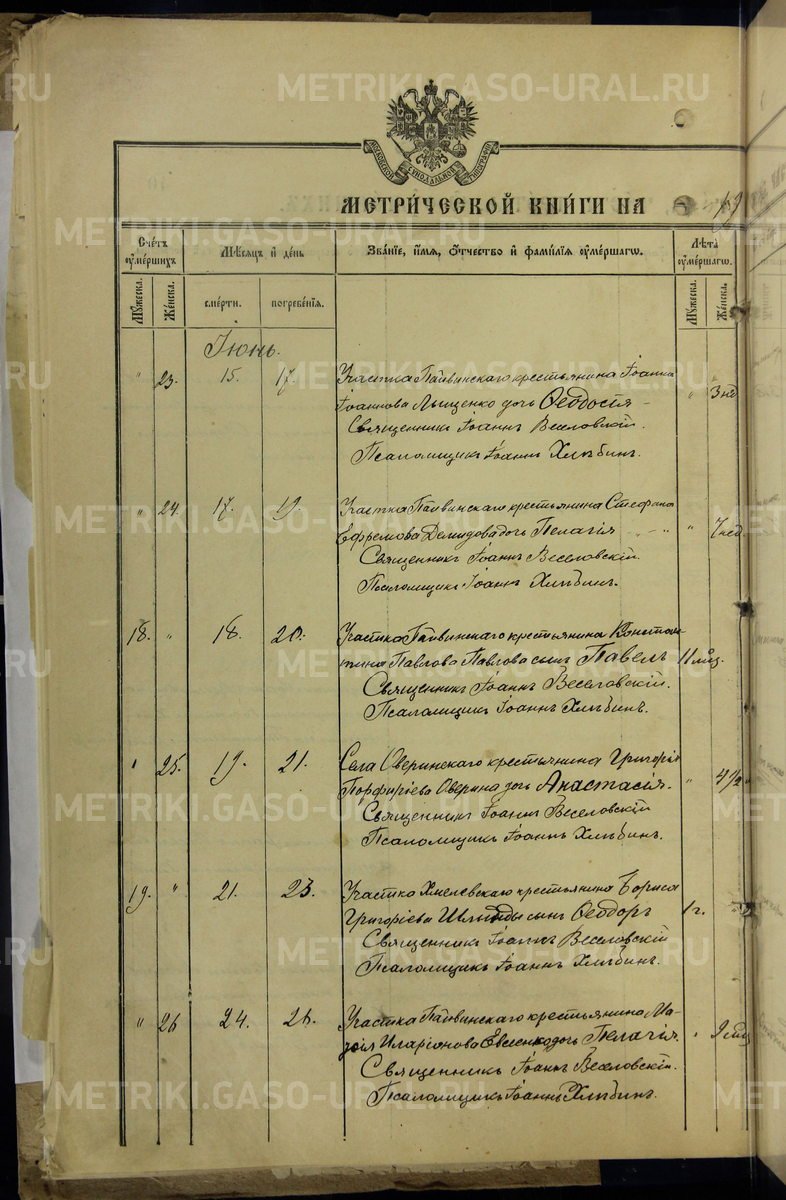 МОСКОВСКОЙ СѴНОДАЛЬНОЙ ТИПОГРАФІИ
МЕТРИ́ЧЕСКОЙ КНИ́ГИ НА 19
Сче́тъ ᲂу҆ме́ршихъ
Мѣ́сѧцъ и҆ де́нь
Зва́нїе, и҆́мѧ, ѻ҆́тчество и҆ фами́лїѧ ᲂу҆ме́ршагѡ.
Лѣ́та ᲂу҆ме́ршагѡ.
Мꙋ́жеска.
Же́нска.
сме́рти.
погребе́нїѧ.
Мꙋ́жеска.
Же́нска.
Іюнь.
" 23. 15. 17. Участка Пайвинскаго крестьянина Іоанна " 3 нед
Іоаннова Лыщенко дочь Ѳеодосія –
Священникъ Іоаннъ Веселовскій.
Псаломщикъ Іоаннъ Хлѣбинъ.
" 24. 17. 19. Участка Пайвинскаго крестьянина Стефана
Ефремова Демидова дочь Пелагія " " 7 нед.
Священникъ Іоаннъ Веселовскій.
Псаломщикъ Іоаннъ Хлѣбинъ.
18. " 18. 20. Участка Пайвинскаго крестьянина Констан-
тина Павлова Павлова сынъ Павелъ 11 мѣс.
Священникъ Іоаннъ Веселовскій.
Псаломщикъ Іоаннъ Хлѣбинъ.
" 25. 19. 21. Села Оверинскаго крестьянина Григорія
Порфиріева Оверина дочь Анастасія. " 4 1/2
Священникъ Іоаннъ Веселовскій
Псаломщикъ Іоаннъ Хлѣбинъ.
19. " 21. 23. Участка Хмелевскаго крестьянина Бориса
Григоріева сынъ Ѳеодоръ 1 г.
Священникъ Іоаннъ Веселовскій
Псаломщикъ Іоаннъ Хлѣбинъ.
" 26 24. 26. Участка Пайвинскаго крестьянина
Иларіонова Евсеенко дочь Пелагія. " 2 мѣс
Священникъ Іоаннъ Веселовскій.
Псаломщикъ Іоаннъ Хлѣбинъ.
METRIKI.GASO-URAL.RU